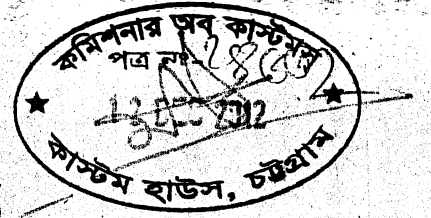 কমিশনার অব কাস্টমস
পত্র নং-
13 DEC 2012
কাস্টম হাউস, চট্টগ্রাম